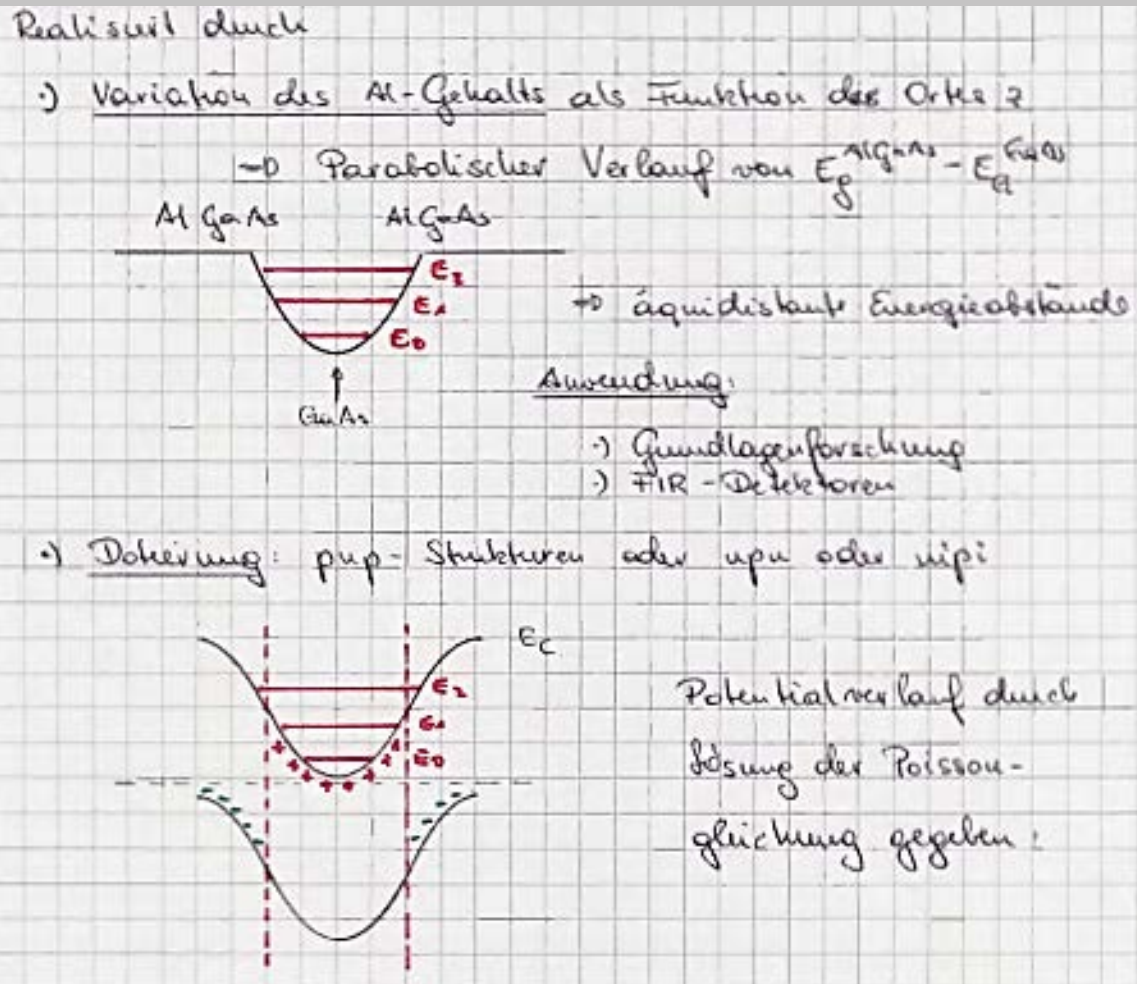 Realisiert durch
·) Variation des Al-Gehalts als Funktion des Ortes z
→ Parabolischer Verlauf von E_g^AlGaAs - E_g^GaAs
AlGaAs AlGaAs
E₂
E₁
E₀
→ äquidistante Energieabstände
GaAs
Anwendung:
·) Grundlagenforschung
·) FIR-Detektoren
·) Dotierung: pnp-Strukturen oder npn oder nipi
E_C
E₂
E₁
E₀
Potentialverlauf durch
Lösung der Poisson-
gleichung gegeben: